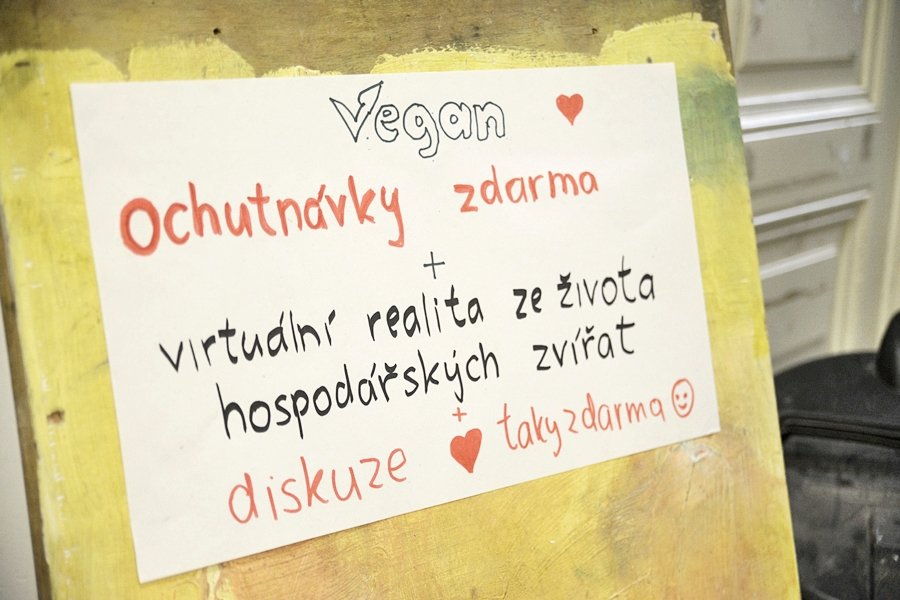 Vegan ♥
Ochutnávky zdarma
+
virtuální realita ze života
hospodářských zvířat
+
diskuze ♥ taky zdarma ☺